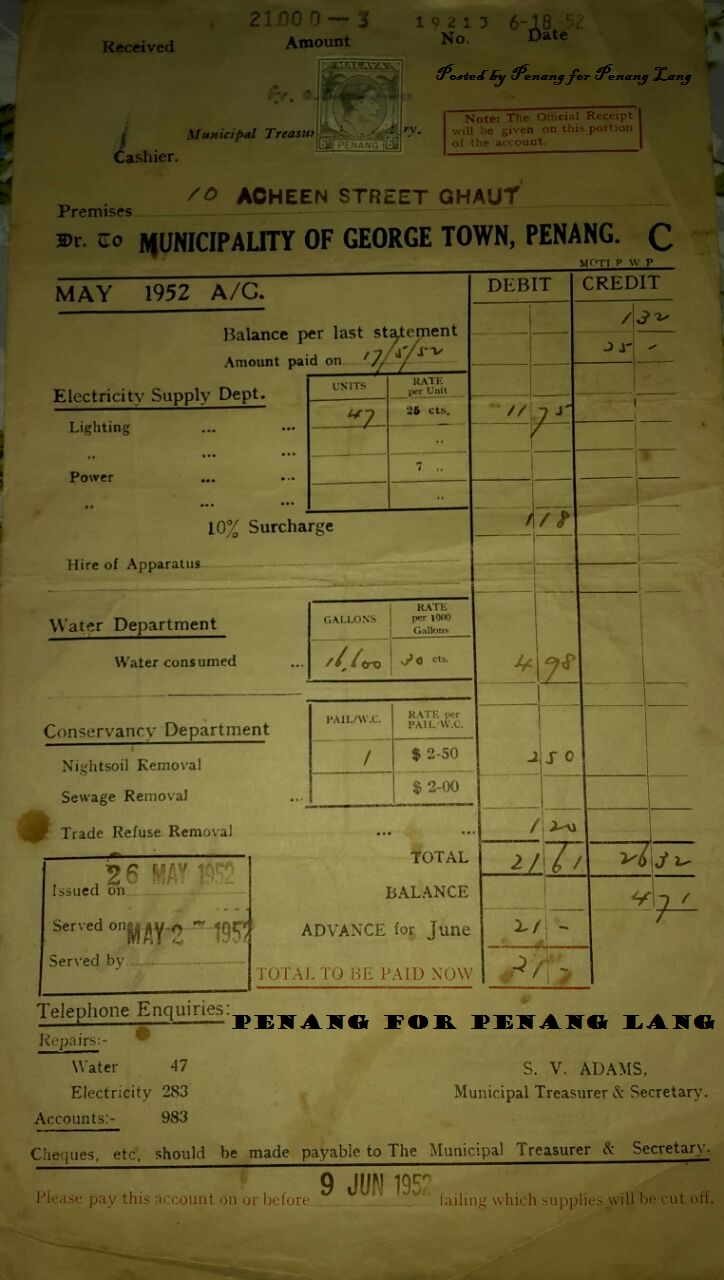 21.00 D — 3 19213 6-18-52
Received Amount No. Date
Posted by Penang for Penang Lang
MALAYA
6c PENANG 6c
Municipal Treasu ry.
Note: The Official Receipt
will be given on this portion
of the account.
Cashier.
Premises 10 ACHEEN STREET GHAUT
Dr. To MUNICIPALITY OF GEORGE TOWN, PENANG. C
MOTI P W P
MAY 1952 A/C. DEBIT CREDIT
Balance per last statement 1 32
Amount paid on 17/5/52 25 -
Electricity Supply Dept. UNITS RATE per Unit
Lighting ... ... 47 25 cts. 11 75
,, ... ... ,,
Power ... ... 7 ,,
,, ... ... ,,
10% Surcharge 1 18
Hire of Apparatus
Water Department GALLONS RATE per 1000 Gallons
Water consumed ... 16,600 30 cts. 4 98
Conservancy Department PAIL/W.C. RATE per PAIL/W.C.
Nightsoil Removal 1 $ 2-50 2 50
Sewage Removal ... $ 2-00
Trade Refuse Removal ... ... 1 20
TOTAL 21 61 26 32
Issued on 26 MAY 1952
BALANCE 4 71
Served on MAY 2 - 1952
ADVANCE for June 21 -
Served by
TOTAL TO BE PAID NOW 21 -
Telephone Enquiries:
PENANG FOR PENANG LANG
Repairs:-
Water 47
S. V. ADAMS,
Electricity 283
Municipal Treasurer & Secretary.
Accounts:- 983
Cheques, etc, should be made payable to The Municipal Treasurer & Secretary.
Please pay this account on or before 9 JUN 1952 failing which supplies will be cut off.